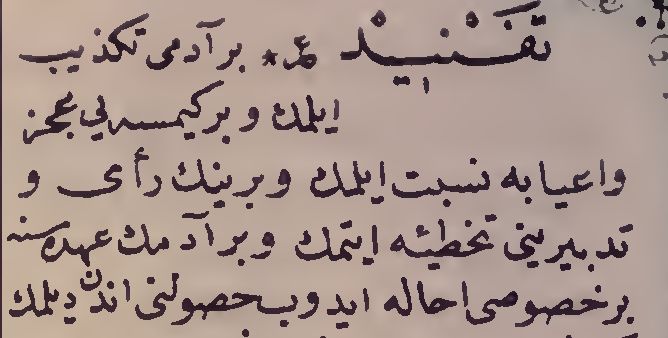 تَفْنِيدْ ع * بر آدمی تكذیب
ایلمك و بر كیمسه‌یی عجز
و اعیایه نسبت ایلمك و برینك رأی و
تدبیرینی تخطئه ایتمك و بر آدمك عهده‌سنه
بر خصوصی احاله ایدوب حصولنی اندن دیلمك